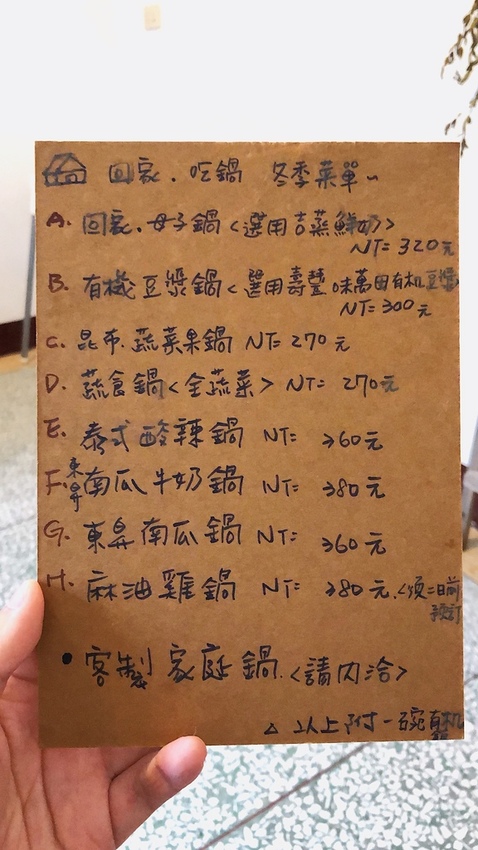 回家.吃鍋 冬季菜單~
A. 回家.母子鍋<選用吉蒸鮮奶>
NT=320元
B. 有機豆漿鍋<選用壽豐味萬田有机豆漿>
NT=300元
C. 昆布.蔬菜果鍋 NT=270元
D. 蔬食鍋<全蔬菜> NT=270元
E. 泰式酸辣鍋 NT=260元
F. 東昇南瓜牛奶鍋 NT=280元
G. 東昇南瓜鍋 NT=260元
H. 麻油雞鍋 NT=280元.<須二日前預訂
•客製家庭鍋.<請內洽>
△以上附一碗有机